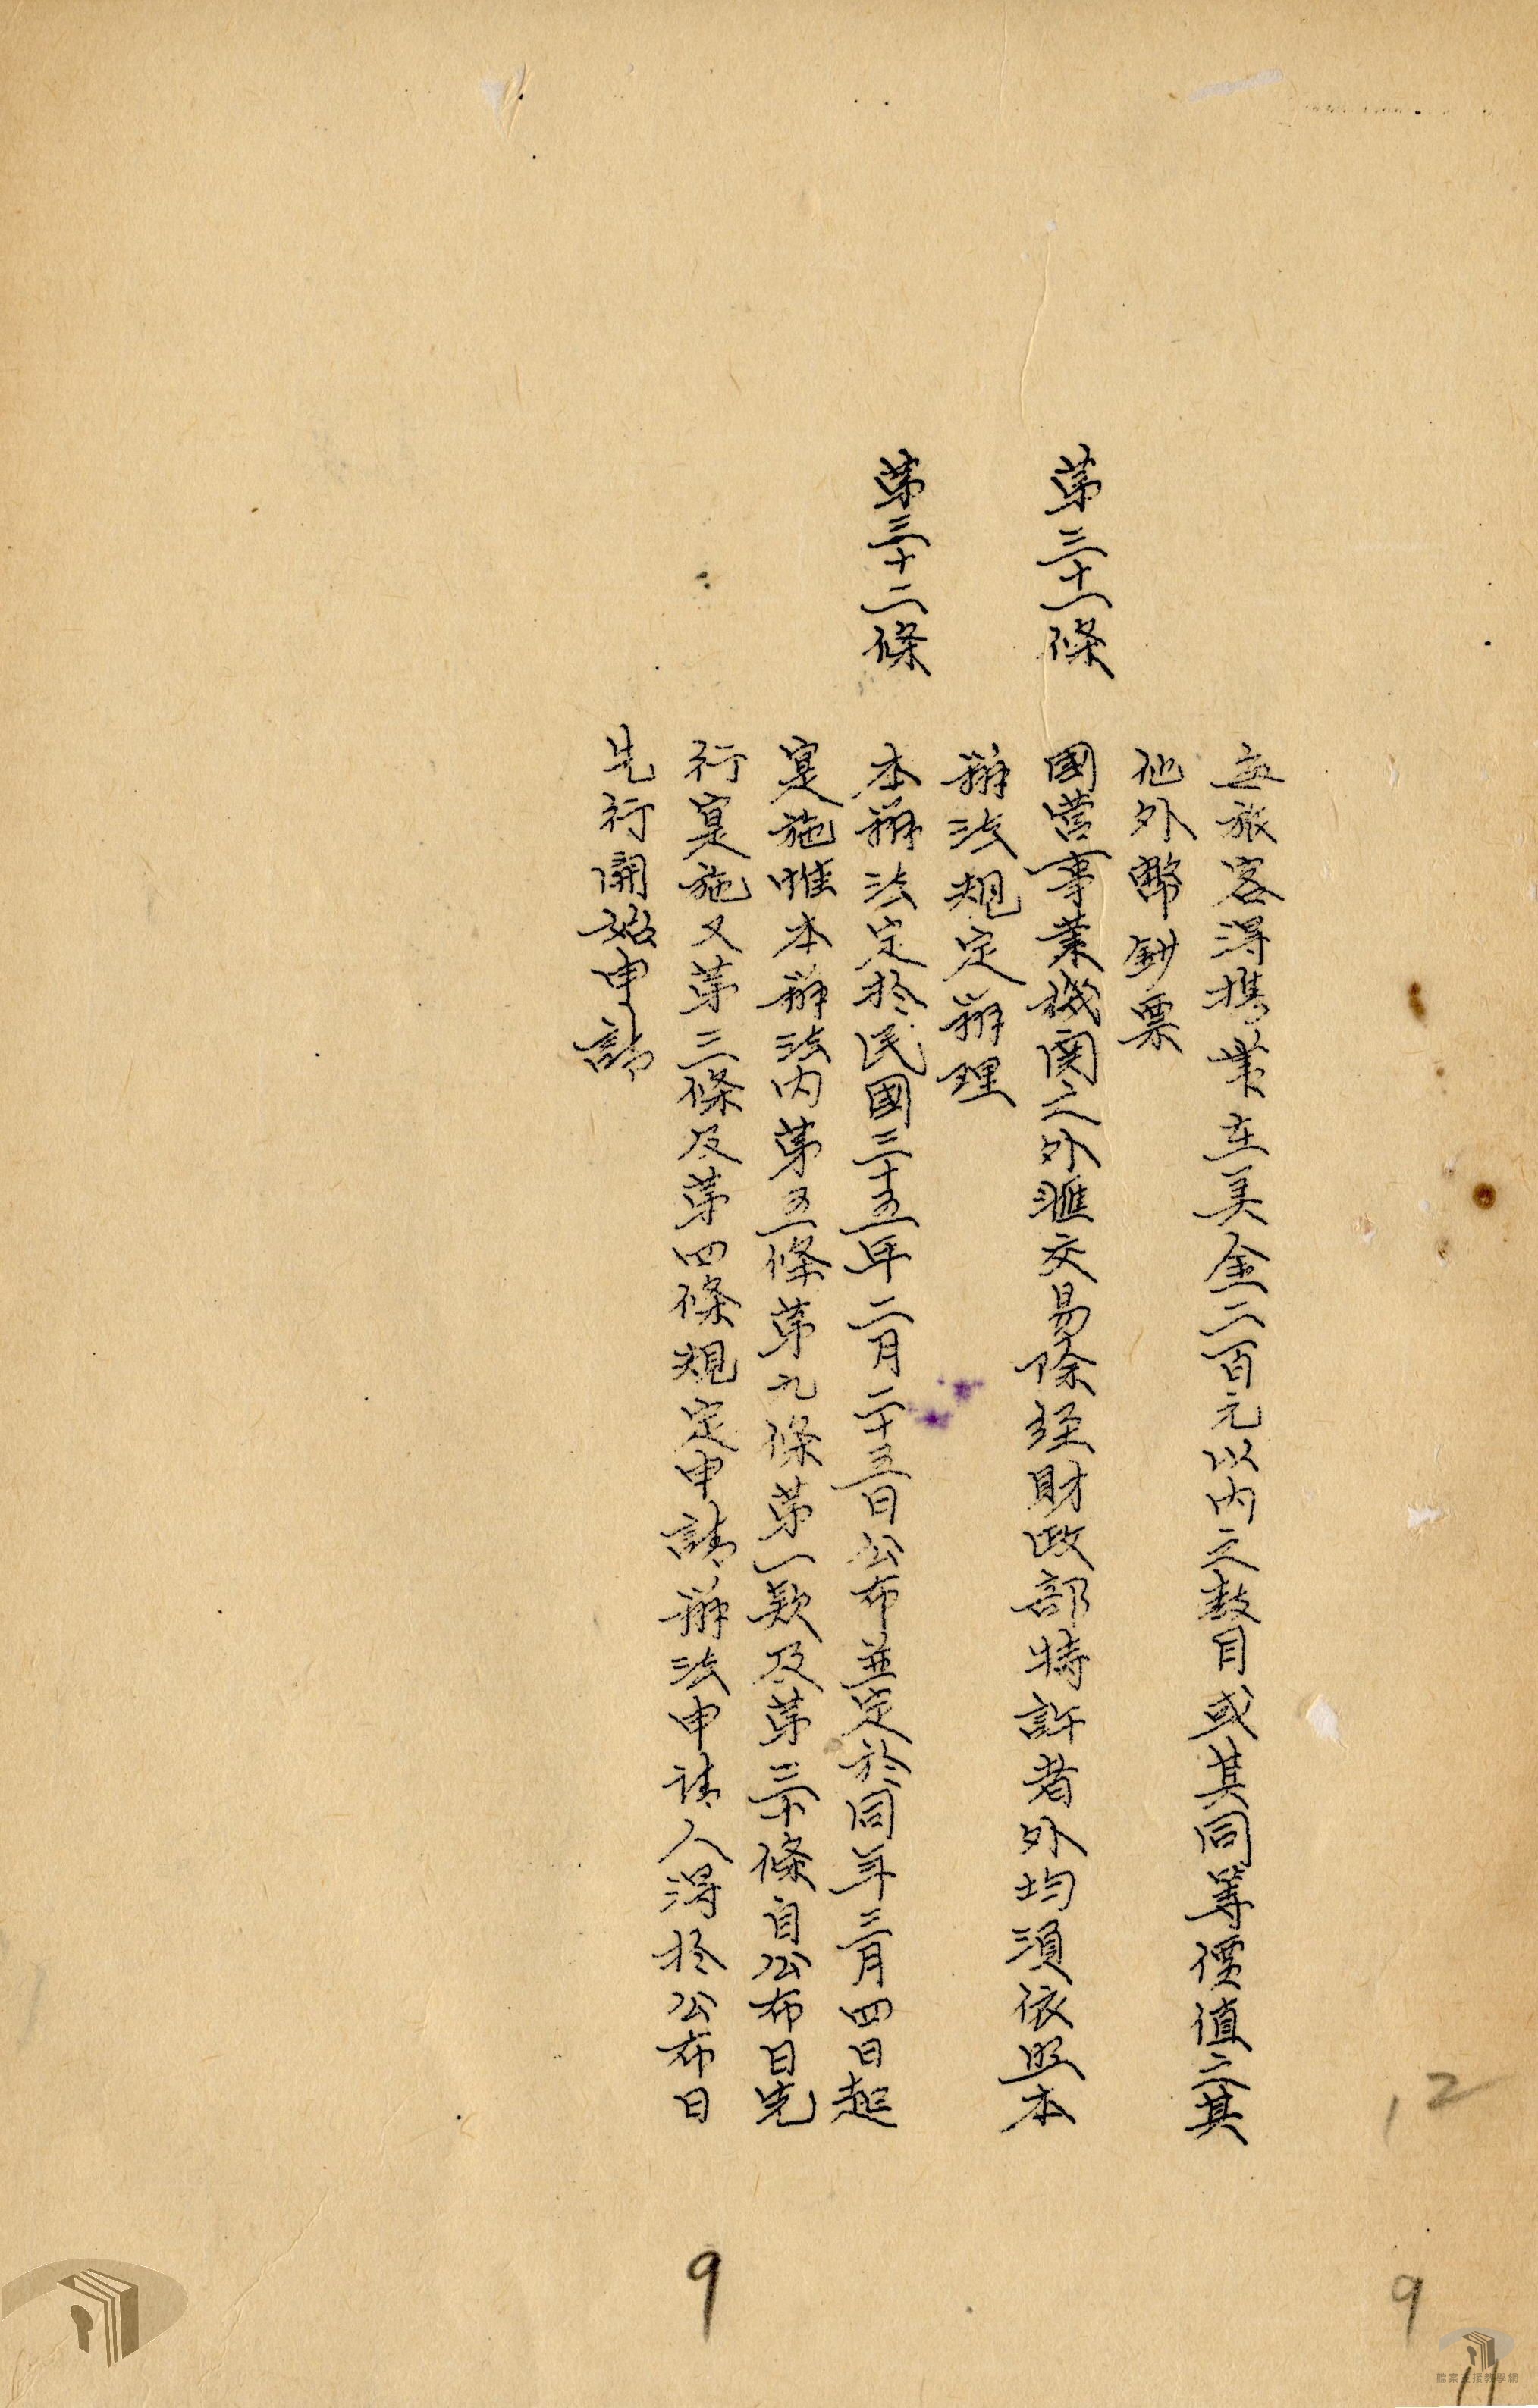 每旅客得携帶在美金二百元以內之数目或其同等價值之其
他外幣鈔票
第三十一條 國营事業機関之外滙交易除经財政部特許者外均須依照本
辦法規定辦理
第三十二條 本辦法定於民國三十五年二月二十五日公布並定於同年三月四日起
寔施惟本辦法内第五條第九條第一款及第三十條自公布日先
行寔施又第三條及第四條規定申請辦法申请人得於公布日
先行開始申請
12
9
9
11
檔案支援教學網